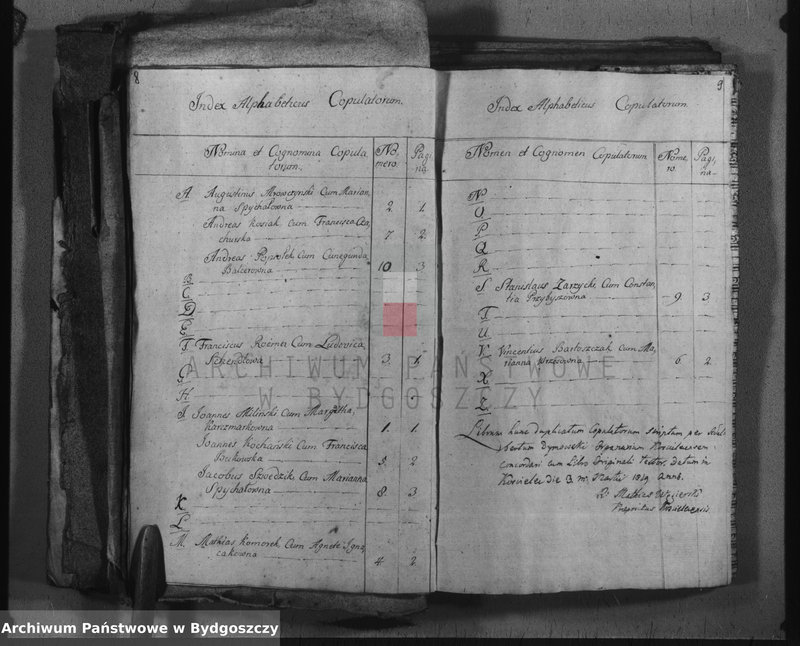 8
Index Alphabeticus Copulatorum.
Nomina et Cognomina Copula
torum.
Nu
mero.
Pagi
na
A. Augustinus Mrowczynski Cum Marian
na Spychałowna 2. 1.
Andreas Kosiak Cum Francisca
churska 7. 2.
Andreas Cum Cunegunda
Balcerowna 10 3
B
C
D
E
F. Franciscus Roemer Cum Ludovica
3. 1.
G
H
I. Joannes Miliński Cum
Karzmarkowna 1. 1.
Joannes Kochański Cum Francisca
Bukowska 5. 2
Jacobus Szwedzik Cum Marianna
Spychałowna 8. 3
K
L
M. Mathias Komorek Cum Agnete Igna
cakowna 4. 2.
9
Index Alphabeticus Copulatorum
Nomen et Cognomen Copulatorum
Nume
ro.
Pagi
na
N
O
P
Q
R
S Stanislaus Zarzycki Cum Constan
tia Przybyszowna 9. 3
T
U
V Vincentius Bartoszczak Cum Ma
rianna 6. 2
X
Z
Librum hunc duplicatum Copulatorum scriptum per
bertum Dymowski Organarium
concordari cum Libro Originali testor, datum in
Koscielec die 3 m. Martii 1819 Anno.
Mathias
Praepositus
ARCHIWUM PAŃSTWOWE
W BYDGOSZCZY
Archiwum Państwowe w Bydgoszczy